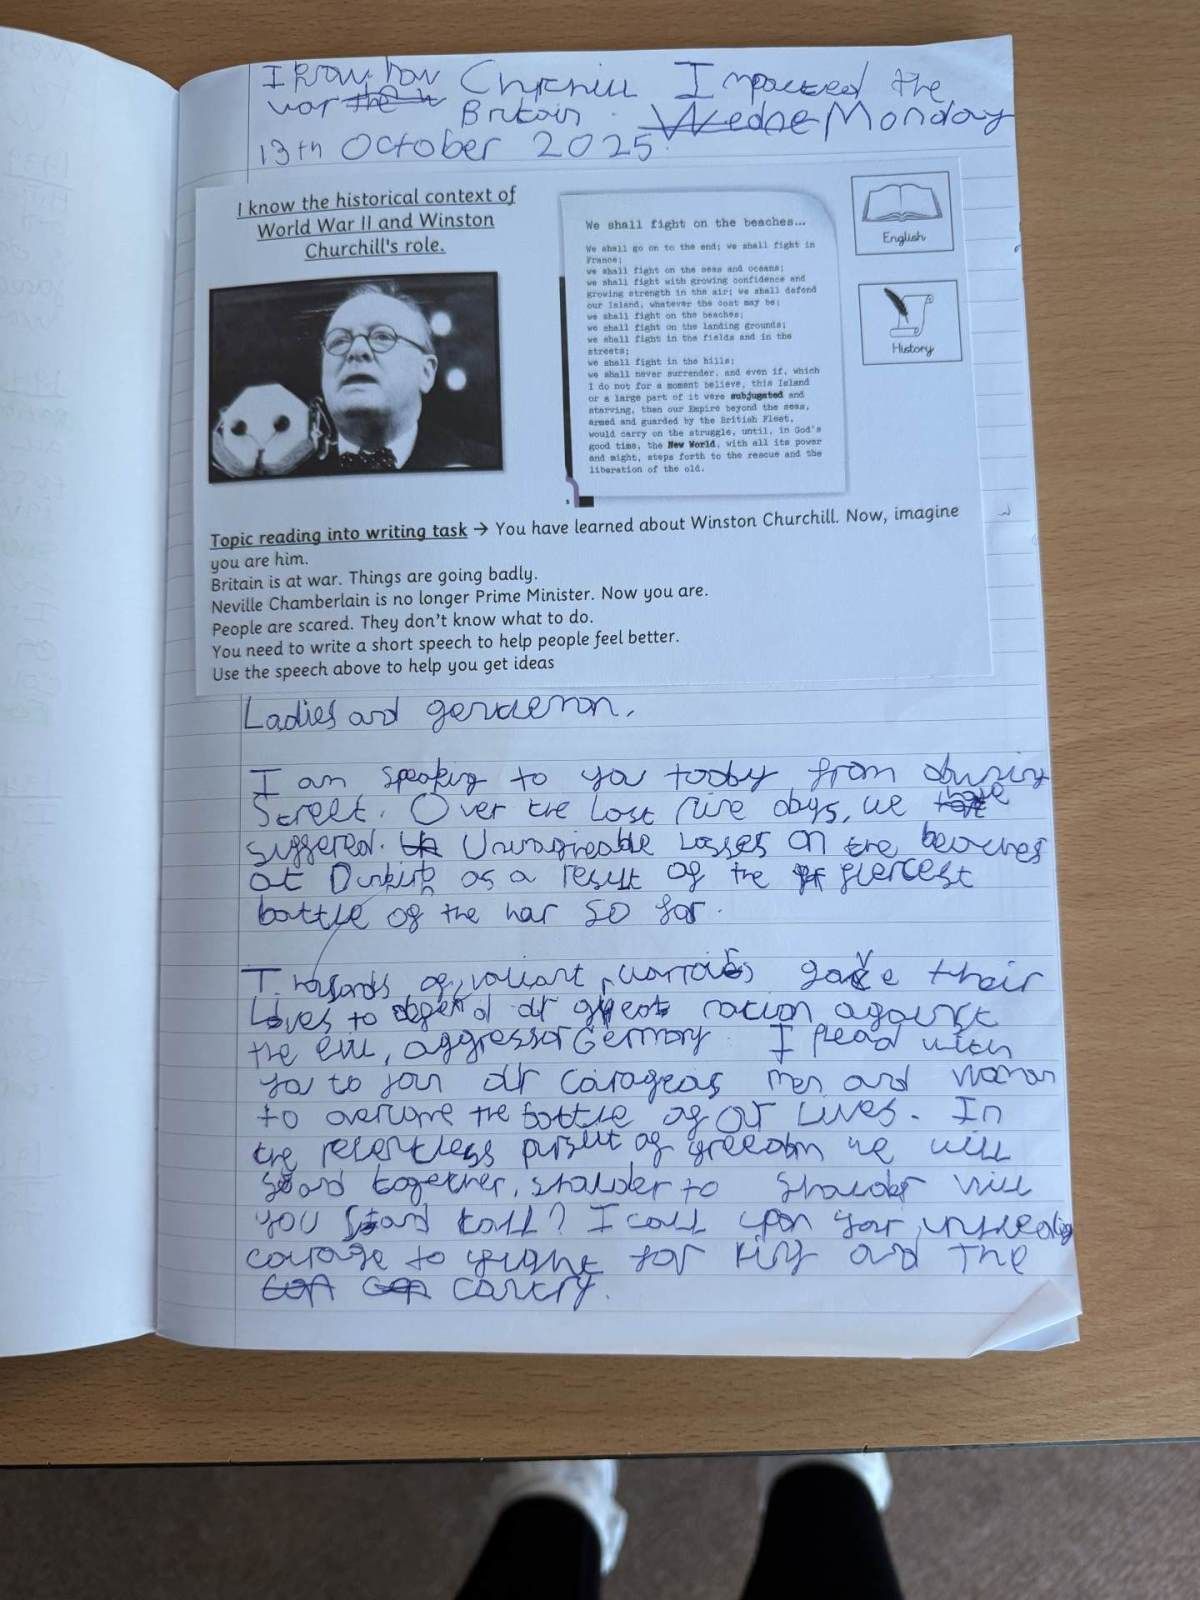 I know how Churchill Impacted the
war the w Britain. Wedne Monday
13th October 2025.
I know the historical context of
World War II and Winston
Churchill's role.
We shall fight on the beaches...
We shall go on to the end; we shall fight in
France;
we shall fight on the seas and oceans;
we shall fight with growing confidence and
growing strength in the air; we shall defend
our Island, whatever the cost may be;
we shall fight on the beaches;
we shall fight on the landing grounds;
we shall fight in the fields and in the
streets;
we shall fight in the hills;
we shall never surrender, and even if, which
I do not for a moment believe, this Island
or a large part of it were subjugated and
starving, then our Empire beyond the seas,
armed and guarded by the British Fleet,
would carry on the struggle, until, in God's
good time, the New World, with all its power
and might, steps forth to the rescue and the
liberation of the old.
English
History
Topic reading into writing task → You have learned about Winston Churchill. Now, imagine
you are him.
Britain is at war. Things are going badly.
Neville Chamberlain is no longer Prime Minister. Now you are.
People are scared. They don't know what to do.
You need to write a short speech to help people feel better.
Use the speech above to help you get ideas
Ladies and
I am speaking to you today from
Street. Over the last five days, we have
suffered. losses on the beaches
at as a result of the fiercest
battle of the war so far.
of valiant, warriors gave their
lives to nation against
the evil, aggressor Germany. I plead with
you to join men and woman
to overcome the battle of our Lives. In
the relentless pursuit of freedom we will
stand together, to will
you stand tall? I call upon your
courage to fight for king and the
country.